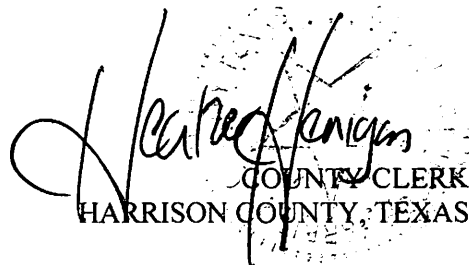 Heather Henigan
COUNTY CLERK
HARRISON COUNTY, TEXAS